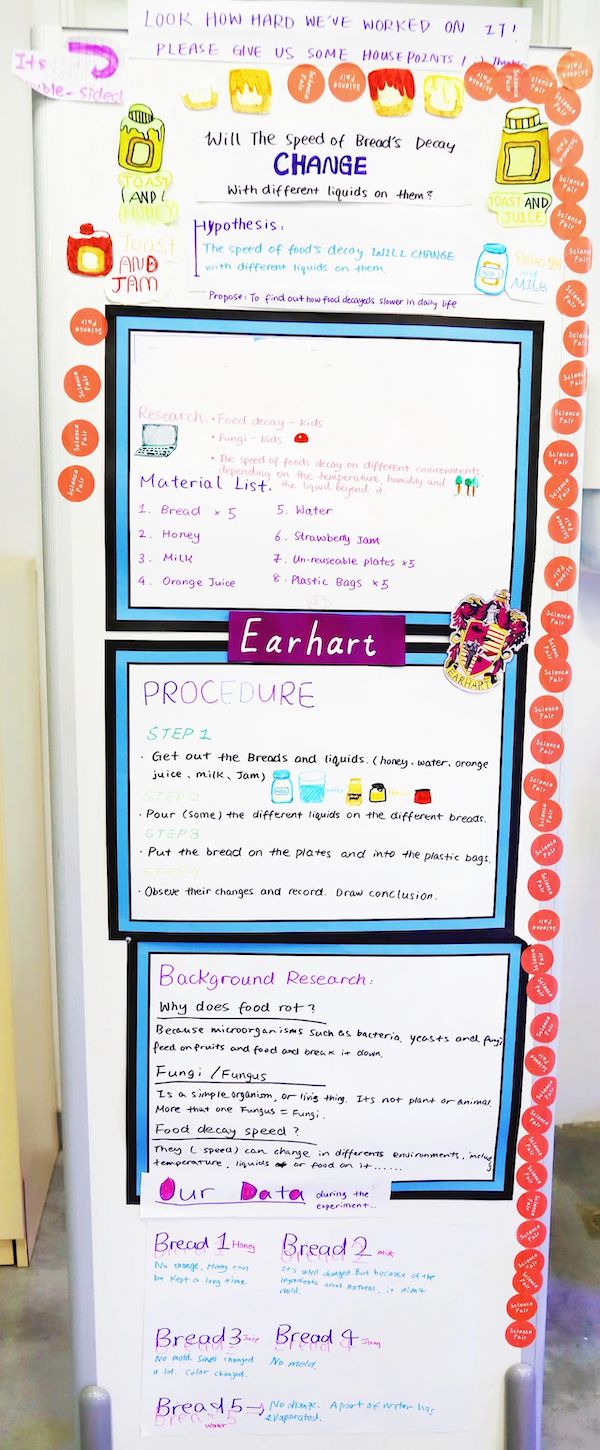 LOOK HOW HARD WE'VE WORKED ON IT!
PLEASE GIVE US SOME HOUSEPOINTS! :) Thanks
It's
double-sided
Will The Speed of Bread's Decay
CHANGE
With different liquids on them?
TOAST
AND
HONEY
TOAST AND
JUICE
Toast
AND
JAM
and
MILK
Hypothesis:
The speed of food's decay WILL CHANGE
with different liquids on them.
Propose: To find out how food decayeds slower in daily life
Research: • Food decay - kids
• Fungi - kids
• The speed of foods decay on different environments,
depending on the temperature, humidity and
the liquid beyond it.
Material List.
1. Bread ×5
2. Honey
3. Milk
4. Orange Juice
5. Water
6. Strawberry Jam
7. Un-reuseable plates ×5
8. Plastic Bags ×5
Earhart
EARHART
PROCEDURE
STEP 1
• Get out the Breads and liquids. (honey、water、orange
juice、milk、Jam)
STEP 2
• Pour (some) the different liquids on the different breads.
STEP 3
• Put the bread on the plates and into the plastic bags.
STEP 4
• Obseve their changes and record. Draw conclusion.
Background Research:
Why does food rot?
Because microorganisms such as bacteria, yeasts and fungi
feed on fruits and food and break it down.
Fungi / Fungus
Is a simple organism, or living thing. Its not plant or animal.
More that one Fungus = Fungi.
Food decay speed?
They (speed) can change in differents environments,
temperature, liquids or food on it......
Our Data during the
experiment...
Bread 1 Honey
No change. Honey can
be kept a long time
Bread 2 milk
It's smell changed. But because of the
ingredients arent natural, it didn't
mold.
Bread 3 Juice
No mold. Smell changed
a lot. Color changed.
Bread 4 Jam
No mold.
Bread 5 → No change. A part of water has
evaporated.
water
Science
Fair